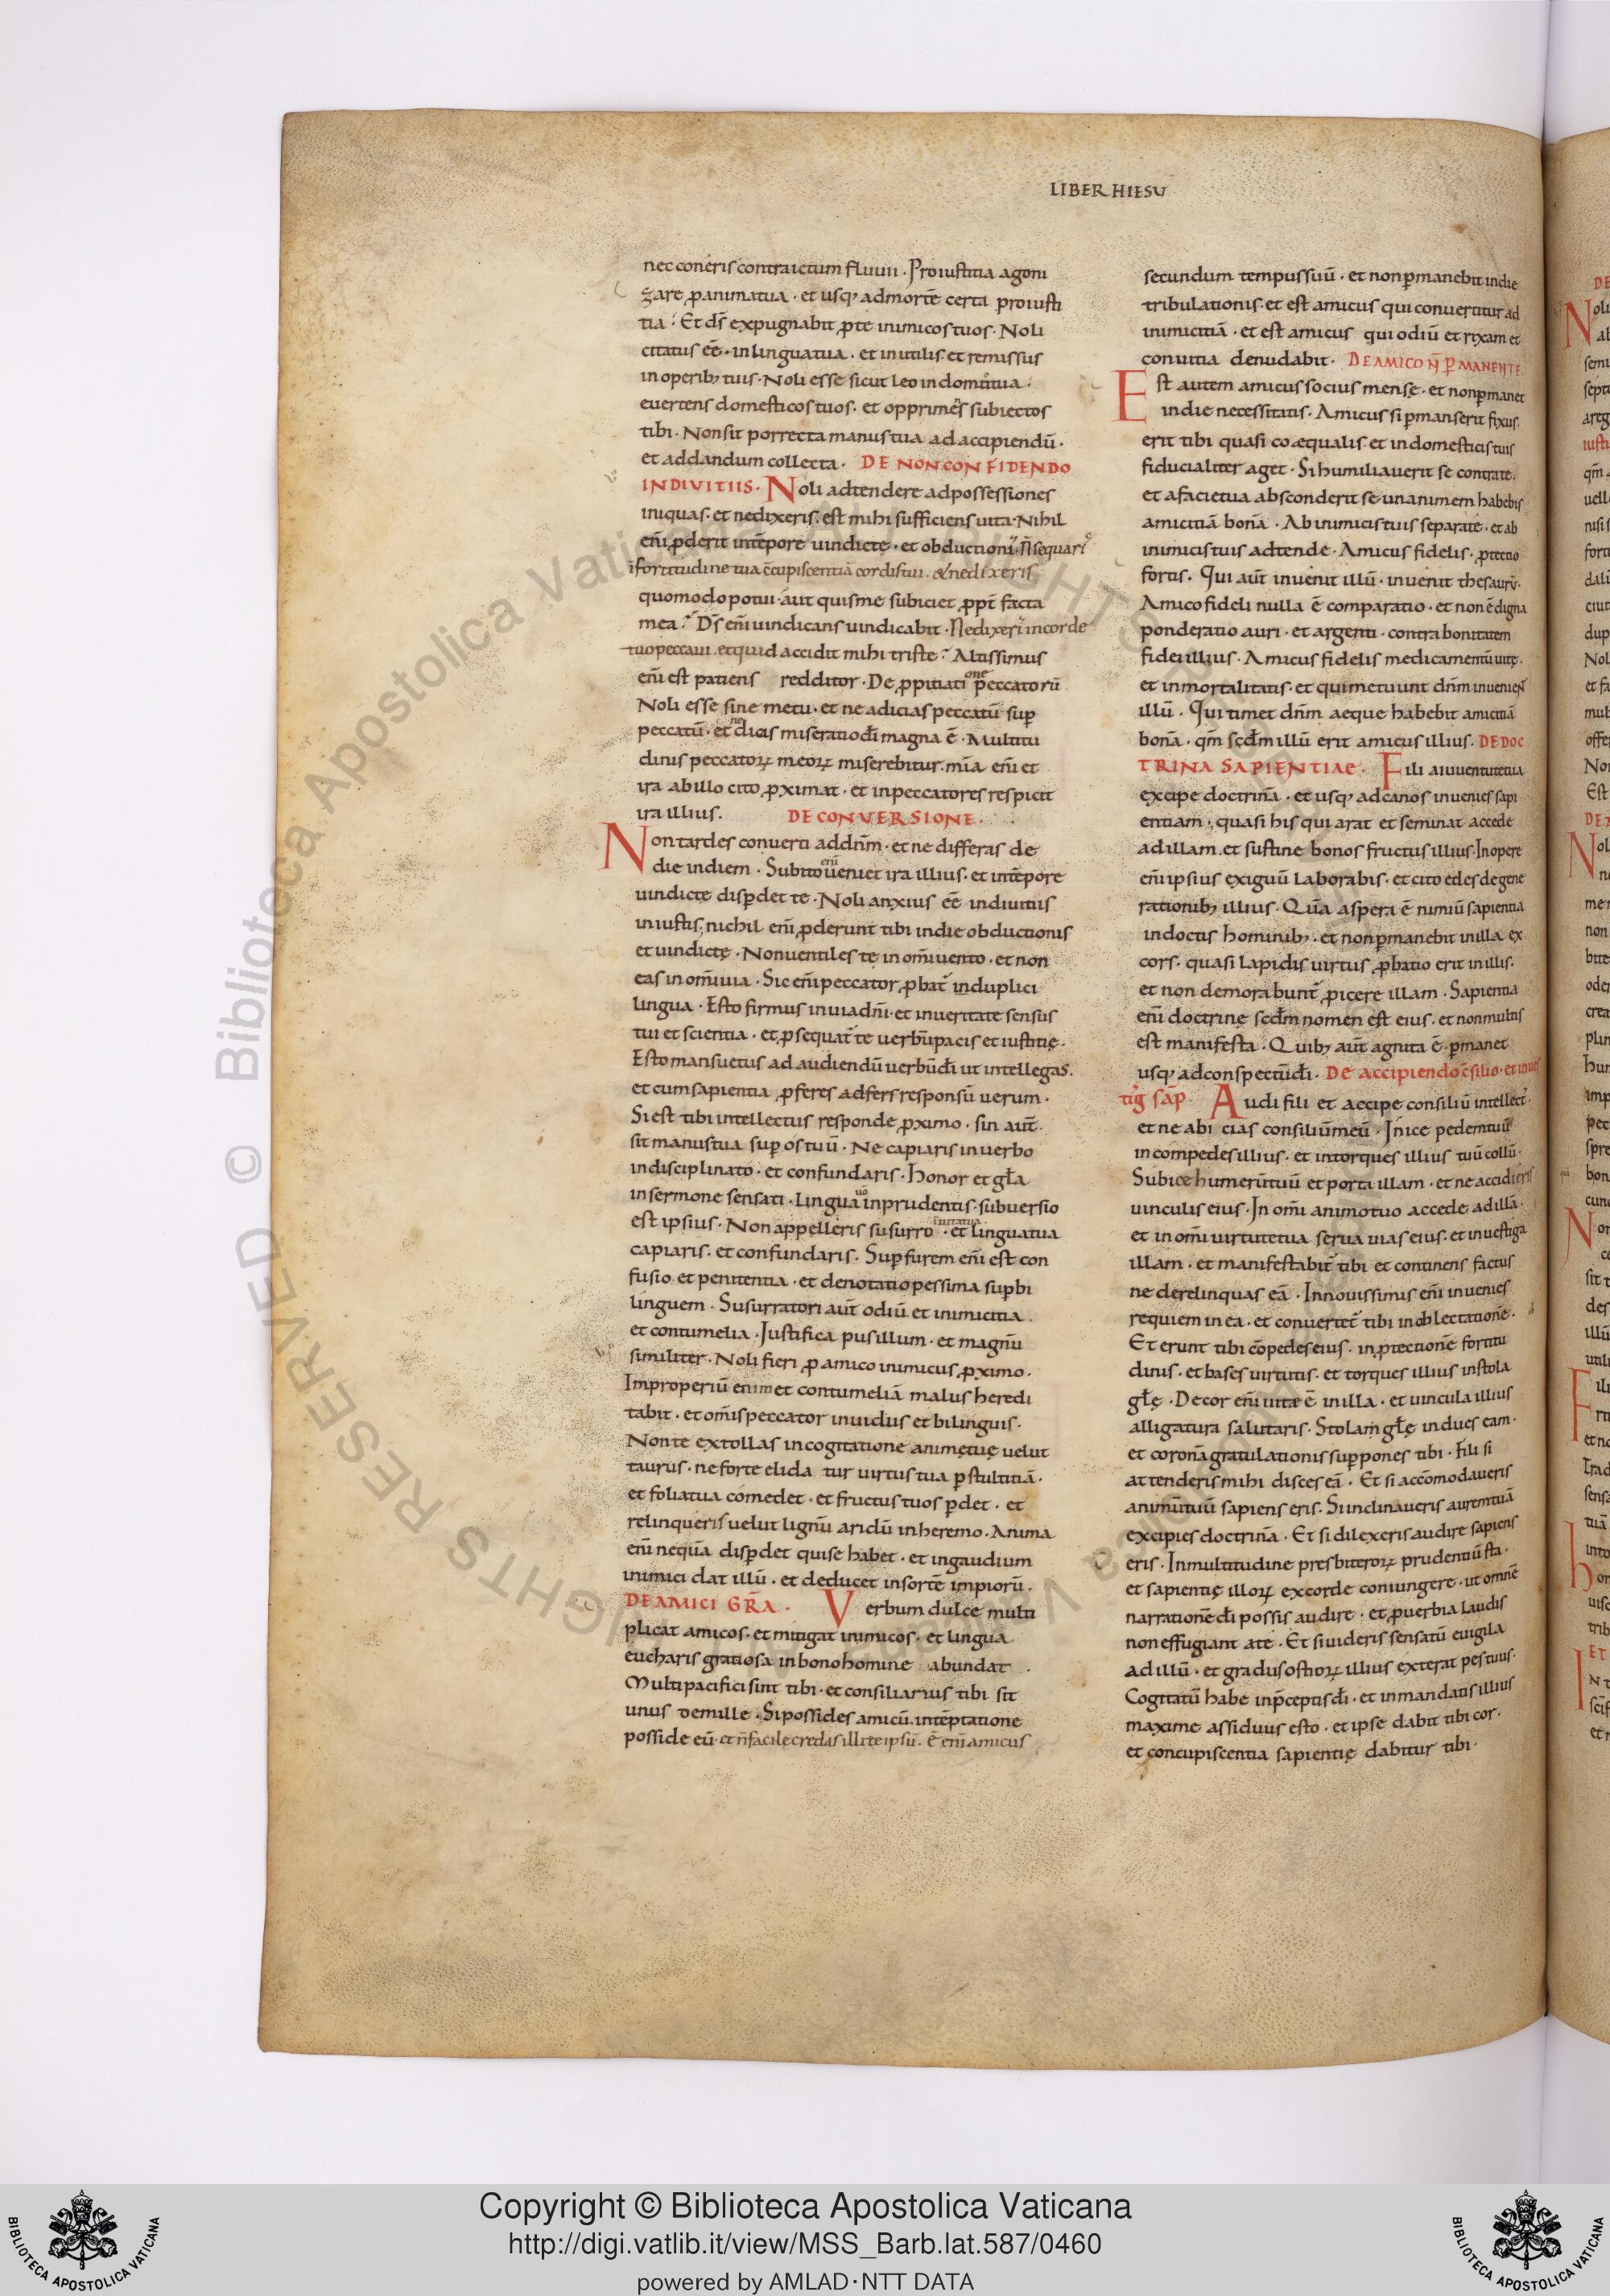 LIBER HIESU
nec coneris contra ictum fluuii · Pro iustitia agoni
zare ꝓ anima tua · et usq; ad mortē certa pro iusti
tia · Et ds̄ expugnabit ꝓ te inimicos tuos · Noli
citatus eē · in lingua tua · et inutilis et remissus
in operib; tuis · Noli esse sicut leo in domu tua ·
euertens domesticos tuos · et opprimens subiectos
tibi · Non sit porrecta manus tua ad accipiendū ·
et ad dandum collecta · DE NON CONFIDENDO
IN DIVITIIS · Noli adtendere ad possessiones
iniquas · et ne dixeris · est mihi sufficiens uita · Nihil
eni ꝓderit in tēpore uindictę · et obductioni · N̄ sequaris
ī fortitudine tua c̄cupiscentiā cordis tui · & ne dixeris
quomodo potui · aut quis me subiciet ꝓpt facta
mea · Ds̄ eni uindicans uindicabit · Ne dixeris in corde
tuo peccaui · et quid accidit mihi triste · Altissimus
eni est patiens redditor · De ꝓpitiatione peccatorū
Noli esse sine metu · et ne adicias peccatū sup
peccatū · et ne dicas miseratio dī magna ē · Multitu
dinis peccatoꝝ meoꝝ miserebitur · mīa eni et
ira ab illo cito ꝓximat · et in peccatores respicit
ira illius · DE CONVERSIONE ·
Non tardes conuerti ad dnm̄ · et ne differas de
die in diem · Subito eni ueniet ira illius · et in tēpore
uindictę disꝑdet te · Noli anxius eē in diuitiis
iniustis, nichil eni ꝓderunt tibi in die obductionis
et uindictę · Non uentiles te in om̄i uento · et non
eas in om̄i uia · Sic eni peccator ꝓbat̄ in duplici
lingua · Esto firmus in uia dn̄i · et in ueritate sensus
tui et scientia · et ꝓsequat̄ te uerbū pacis et iustitię ·
Esto mansuetus ad audiendū uerbū dī ut intellegas ·
et cum sapientia ꝓferes adfers responsū uerum ·
Si est tibi intellectus responde ꝓximo · sin aut̄
sit manus tua sup os tuū · Ne capiaris in uerbo
indisciplinato · et confundaris · Honor et gła
in sermone sensati · lingua uo inprudentis · subuersio
est ipsius · Non appelleris susurro · et lingua tua
capiaris · et confundaris · Sup furem eni est con
fusio et penitentia · et denotatio pessima sup bi
linguem · Susurratori aut̄ odiū et inimicitia ·
et contumelia · Iustifica pusillum · et magnū
similiter · Noli fieri ꝓ amico inimicus ꝓximo ·
Improperiū enim et contumeliā malus heredi
tabit · et om̄is peccator inuidus et bilinguis ·
Non te extollas in cogitatione animę tuę uelut
taurus · ne forte elida tur uirtus tua ꝑ stultitiā ·
et folia tua comedet · et fructus tuos ꝑdet · et
relinqueris uelut lignū aridū in heremo · Anima
eni nequā disꝑdet qui se habet · et in gaudium
inimici dat illū · et deducet in sortē impiorū ·
DE AMICI GRA · Verbum dulce multi
plicat amicos · et mitigat inimicos · et lingua
eucharis gratiosa in bono homine abundat ·
Multi pacifici sint tibi · et consiliarius tibi sit
unus de mille · Si possides amicū in tēptatione
posside eū · et n̄ facile credas illi te ipsū · ē eni amicus
secundum tempus suū · et non ꝑmanebit in die
tribulationis · et est amicus qui conuertitur ad
inimicitiā · et est amicus qui odiū et rixam et
conuitia denudabit · DE AMICO N̄ PMANENTE
Est autem amicus socius mensę · et non ꝑmanet
in die necessitatis · Amicus si ꝑmanserit fixus ·
erit tibi quasi coæqualis et in domesticis tuis
fiducialiter aget · Si humiliauerit se contra te ·
et a facie tua absconderit se unanimem habebis
amicitiā bonā · Ab inimicis tuis separate · et ab
inimicis tuis adtende · Amicus fidelis · ꝓtectio
fortis · Qui aut̄ inuenit illū · inuenit thesaurū ·
Amico fideli nulla ē comparatio · et non ē digna
ponderatio auri · et argenti · contra bonitatem
fidei illius · Amicus fidelis medicamentū uitę ·
et inmortalitatis · et qui metuunt dnm̄ inuenient
illū · Qui timet dnm̄ aeque habebit amicitiā
bonā · qm̄ scdm̄ illū erit amicus illius · DE DOC
TRINA SAPIENTIAE · Fili a iuuentute tua
excipe doctrinā · et usq; ad canos inuenies sapi
entiam · quasi his qui arat et seminat accede
ad illam · et sustine bonos fructus illius · In opere
eni ipsius exiguū laborabis · et cito edes de gene
rationib; illius · Quā aspera ē nimiū sapientia
indoctis hominib; · et non ꝑmanebit in illa ex
cors · quasi lapidis uirtus ꝓbatio erit in illis ·
et non demorabunt̄ ꝓicere illam · Sapientia
eni doctrinę scdm̄ nomen est eius · et non multis
est manifesta · Quib; aut̄ agnita ē · ꝑmanet
usq; ad conspectū dī · DE accipiendo c̄silio · et inues
tig̃ sap̄ · Audi fili et accipe consiliū intellect ·
et ne abi cias consiliū meū · Inice pedem tuū
in compedes illius · et in torques illius tuū collū ·
Subice humerū tuū et porta illam · et ne accidieris
uinculis eius · In om̄i animo tuo accede ad illā ·
et in om̄i uirtute tua serua uias eius · et inuestiga
illam · et manifestabit̄ tibi et continens factus
ne derelinquas eā · In nouissimis eni inuenies
requiem in ea · et conuertet̄ tibi in oblectationē ·
Et erunt tibi cōpedes eius · in ꝓtectionē fortitu
dinis · et bases uirtutis · et torques illius in stola
głę · Decor eni uitæ ē in illa · et uincula illius
alligatura salutaris · Stolam głę indues eam ·
et coronā gratulationis suppones tibi · Fili si
attenderis mihi disces eā · Et si accōmodaueris
animū tuū sapiens eris · Si inclinaueris aurem tuā
excipies doctrinā · Et si dilexeris audire sapiens
eris · In multitudine presbiteroꝝ prudentiū sta ·
et sapientię illoꝝ ex corde coniungere · ut omnē
narrationē dī possis audire · et ꝓuerbia laudis
non effugiant a te · Et si uideris sensatū euigila
ad illū · et gradus ostioꝝ illius exterat pes tuus ·
Cogitatū habe in p̄ceptis dī · et in mandatis illius
maxime assiduus esto · et ipse dabit tibi cor ·
et concupiscentia sapientię dabitur tibi ·
© Biblioteca Apostolica Vaticana
RIGHTS RESERVED
Copyright © Biblioteca Apostolica Vaticana
http://digi.vatlib.it/view/MSS_Barb.lat.587/0460
powered by AMLAD·NTT DATA
BIBLIOTECA APOSTOLICA VATICANA
BIBLIOTECA APOSTOLICA VATICANA